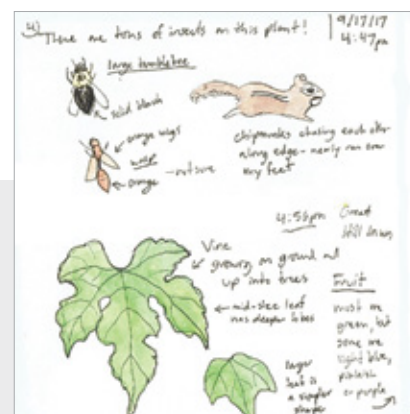 4) There are tons of insects on this plant!
9/17/17
4:47pm
large bumblebee
solid black
orange wings
wasp
orange
-not sure
chipmunks chasing each other
along edge - nearly ran over
my feet
4:56pm
Great
Vine
growing on ground and
up into trees
mid-size leaf
has deeper lobes
larger
leaf is
a simpler
shape
Fruit
most are
green, but
some are
light blue,
pinkish
or purple